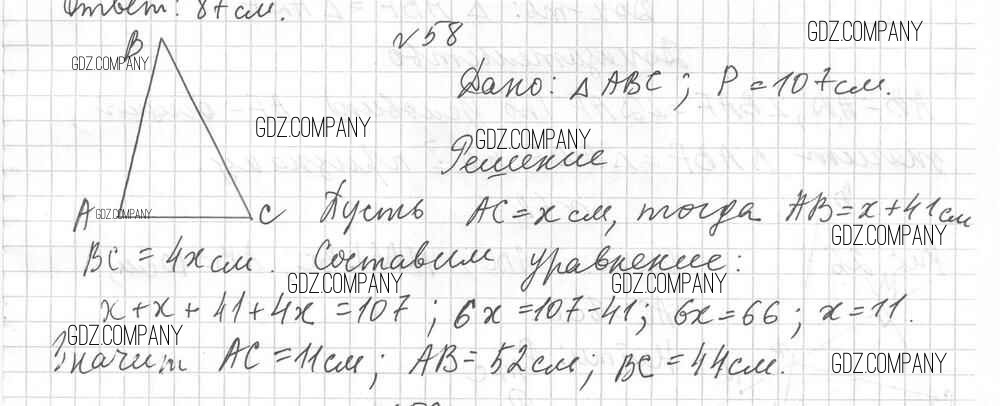 Ответ: 87 см.
№58
Дано: △ABC; P = 107 см.
Решение
B
A
C
Пусть AC = x см, тогда AB = x + 41 см
BC = 4x см. Составим уравнение:
x + x + 41 + 4x = 107; 6x = 107 - 41; 6x = 66; x = 11.
Значит AC = 11 см; AB = 52 см; BC = 44 см.
GDZ.COMPANY
GDZ.COMPANY
GDZ.COMPANY
GDZ.COMPANY
GDZ.COMPANY
GDZ.COMPANY
GDZ.COMPANY
GDZ.COMPANY
GDZ.COMPANY
GDZ.COMPANY